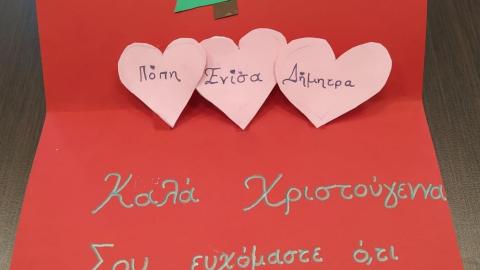 Πόπη Ξνίσα Δήμητρα
Καλά Χριστούγεννα
Σου ευχόμαστε ό,τι